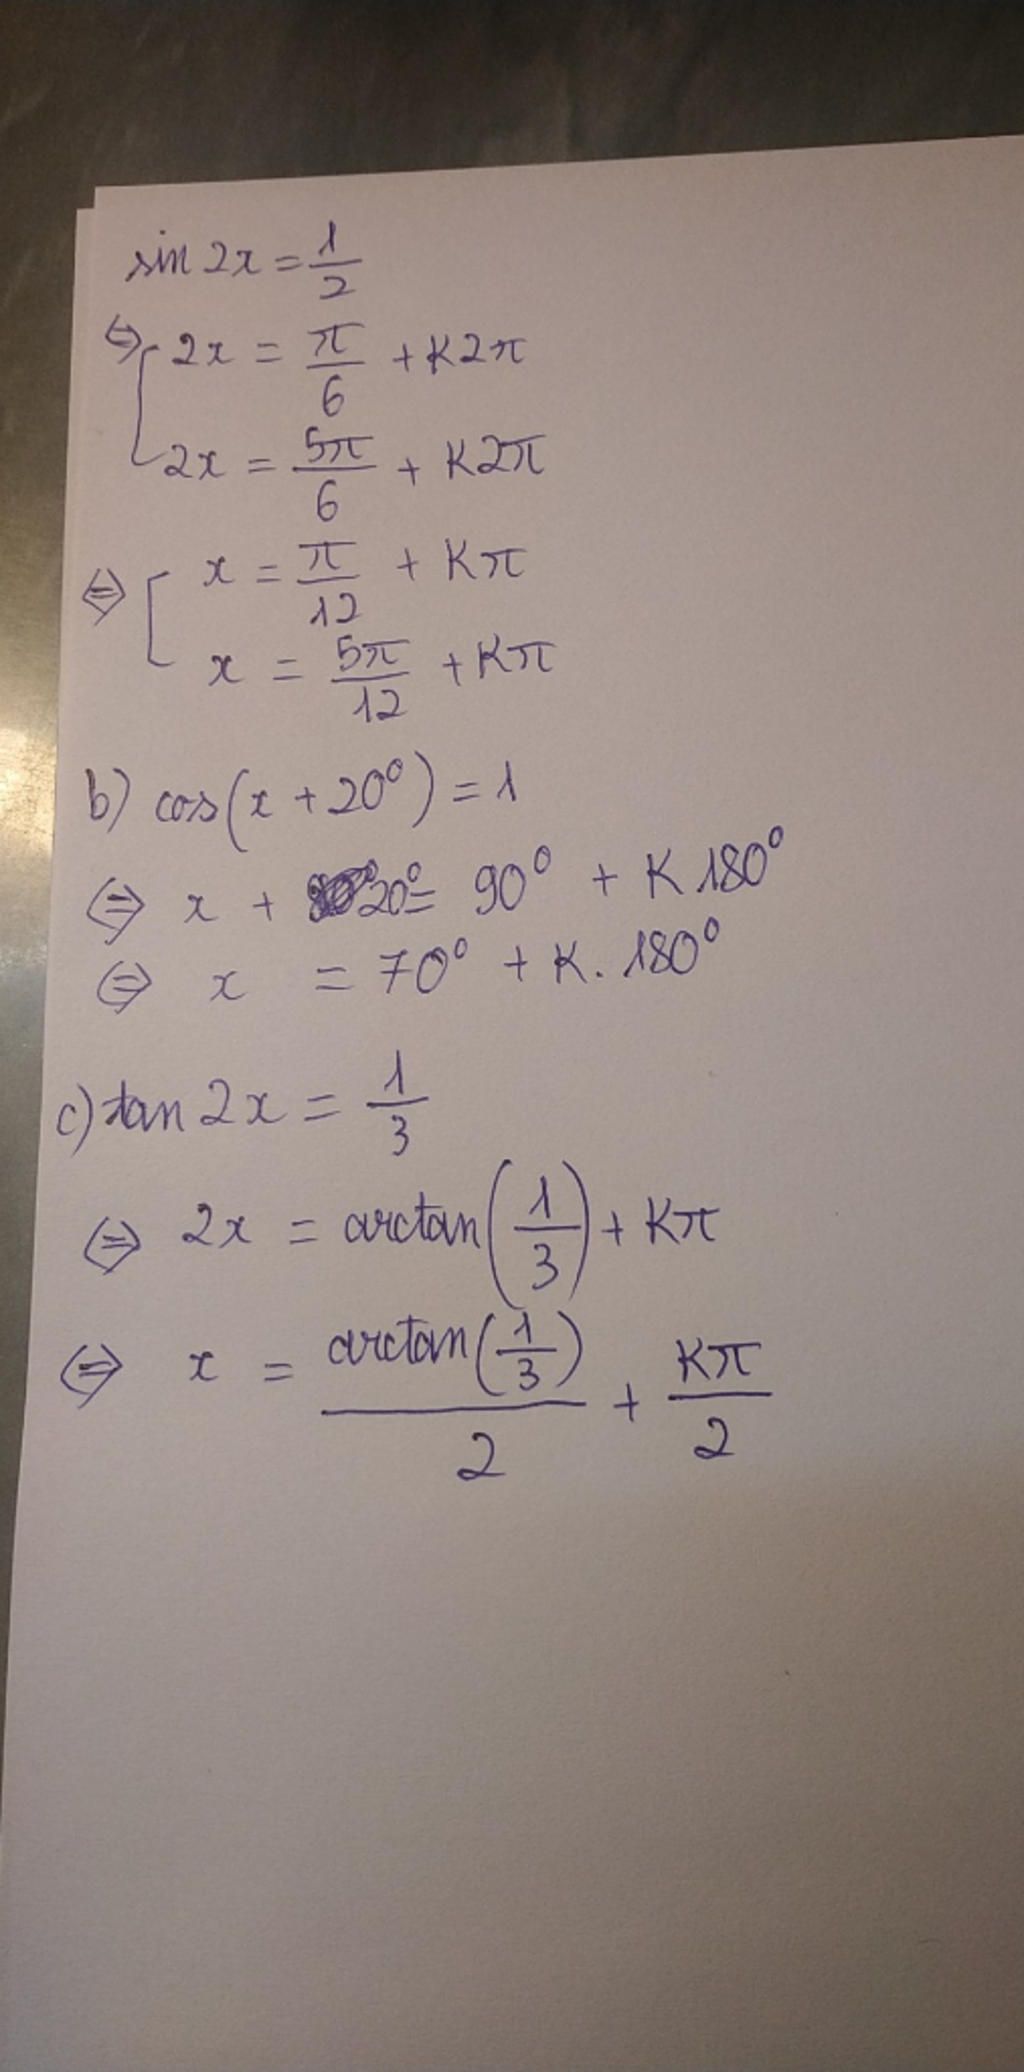 sin 2x = 1/2
⇔ [ 2x = π/6 + K2π
2x = 5π/6 + K2π
⇔ [ x = π/12 + Kπ
x = 5π/12 + Kπ
b) cos(x + 20°) = 1
⇔ x + 20° = 90° + K 180°
⇔ x = 70° + K. 180°
c) tan 2x = 1/3
⇔ 2x = arctan(1/3) + Kπ
⇔ x = arctan(1/3)/2 + Kπ/2